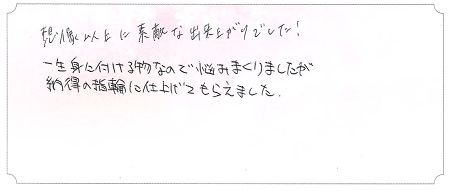 想像以上に素敵な出来上がりでした!
一生身に付ける物なので悩みまくりましたが
納得の指輪に仕上げてもらえました.